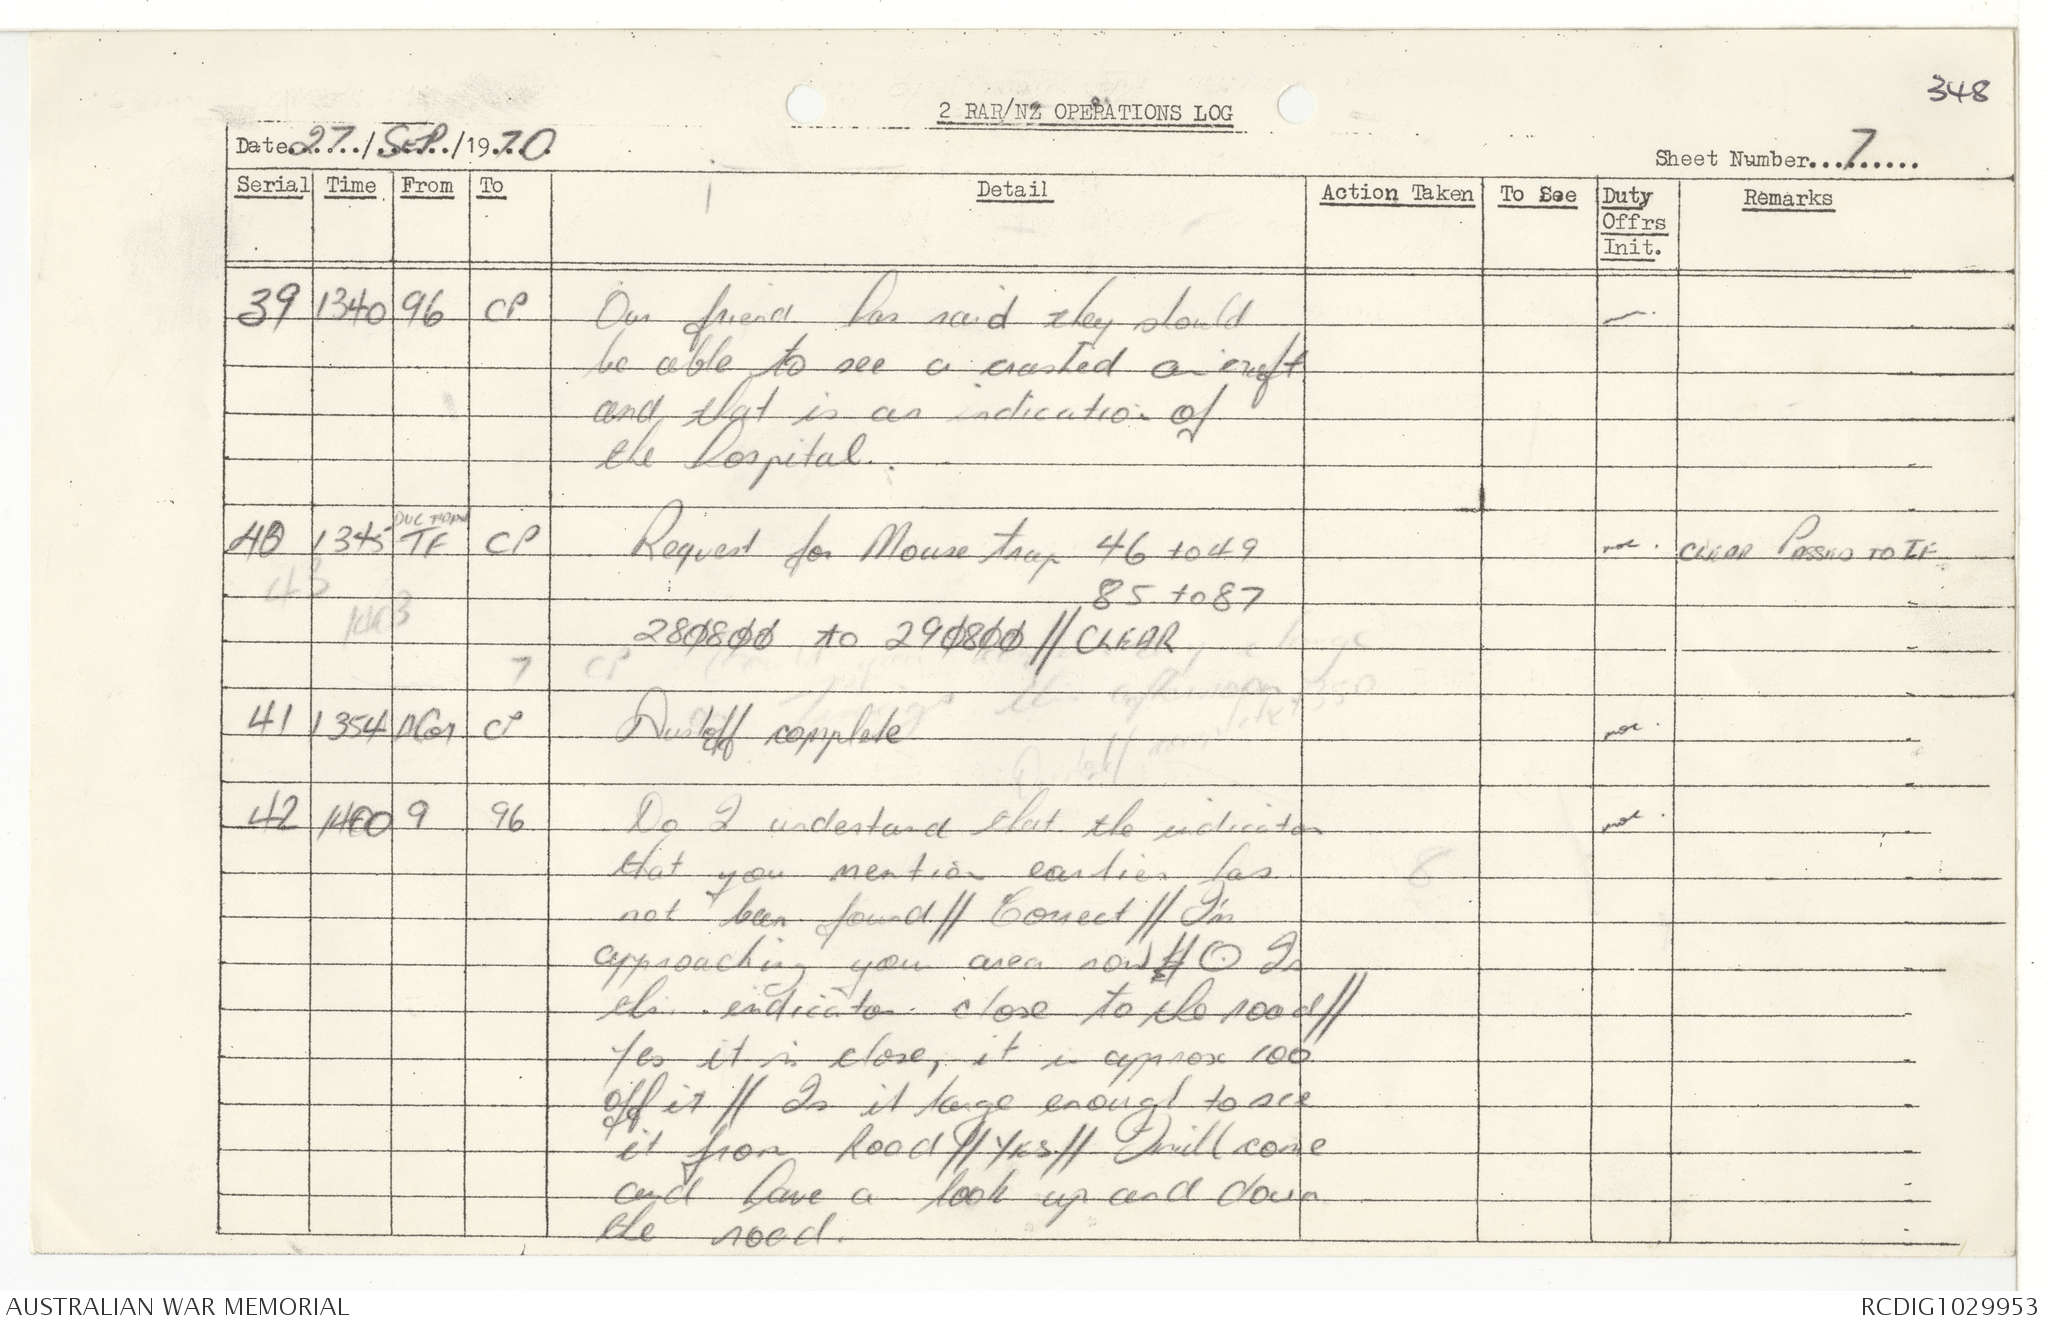 348
2 RAR/NZ OPERATIONS LOG
Date 27 / SEP / 1970
Sheet Number 7
Serial Time From To Detail Action Taken To See Duty Offrs Init. Remarks
39 1340 96 CP Our friend has said they should
be able to see a crashed aircraft
and that is an indication of
the hospital.
40 1345 TF CP Request for Mouse trap 46 to 49 CLEAR PASSED TO TF
85 to 87
43
1403
280800 to 290800 // CLEAR
7 CP
41 1354 CP Dustoff complete
42 1400 9 96 Do I understand that the indicator
that you mention earlier has
not been found // Correct // I'm
approaching your area now // Is
this indicator close to the road //
Yes it is close, it is approx 100
off it // Is it large enough to see
it from Road // Yes // I will come
and have a look up and down
the road.
8
AUSTRALIAN WAR MEMORIAL
RCDIG1029953